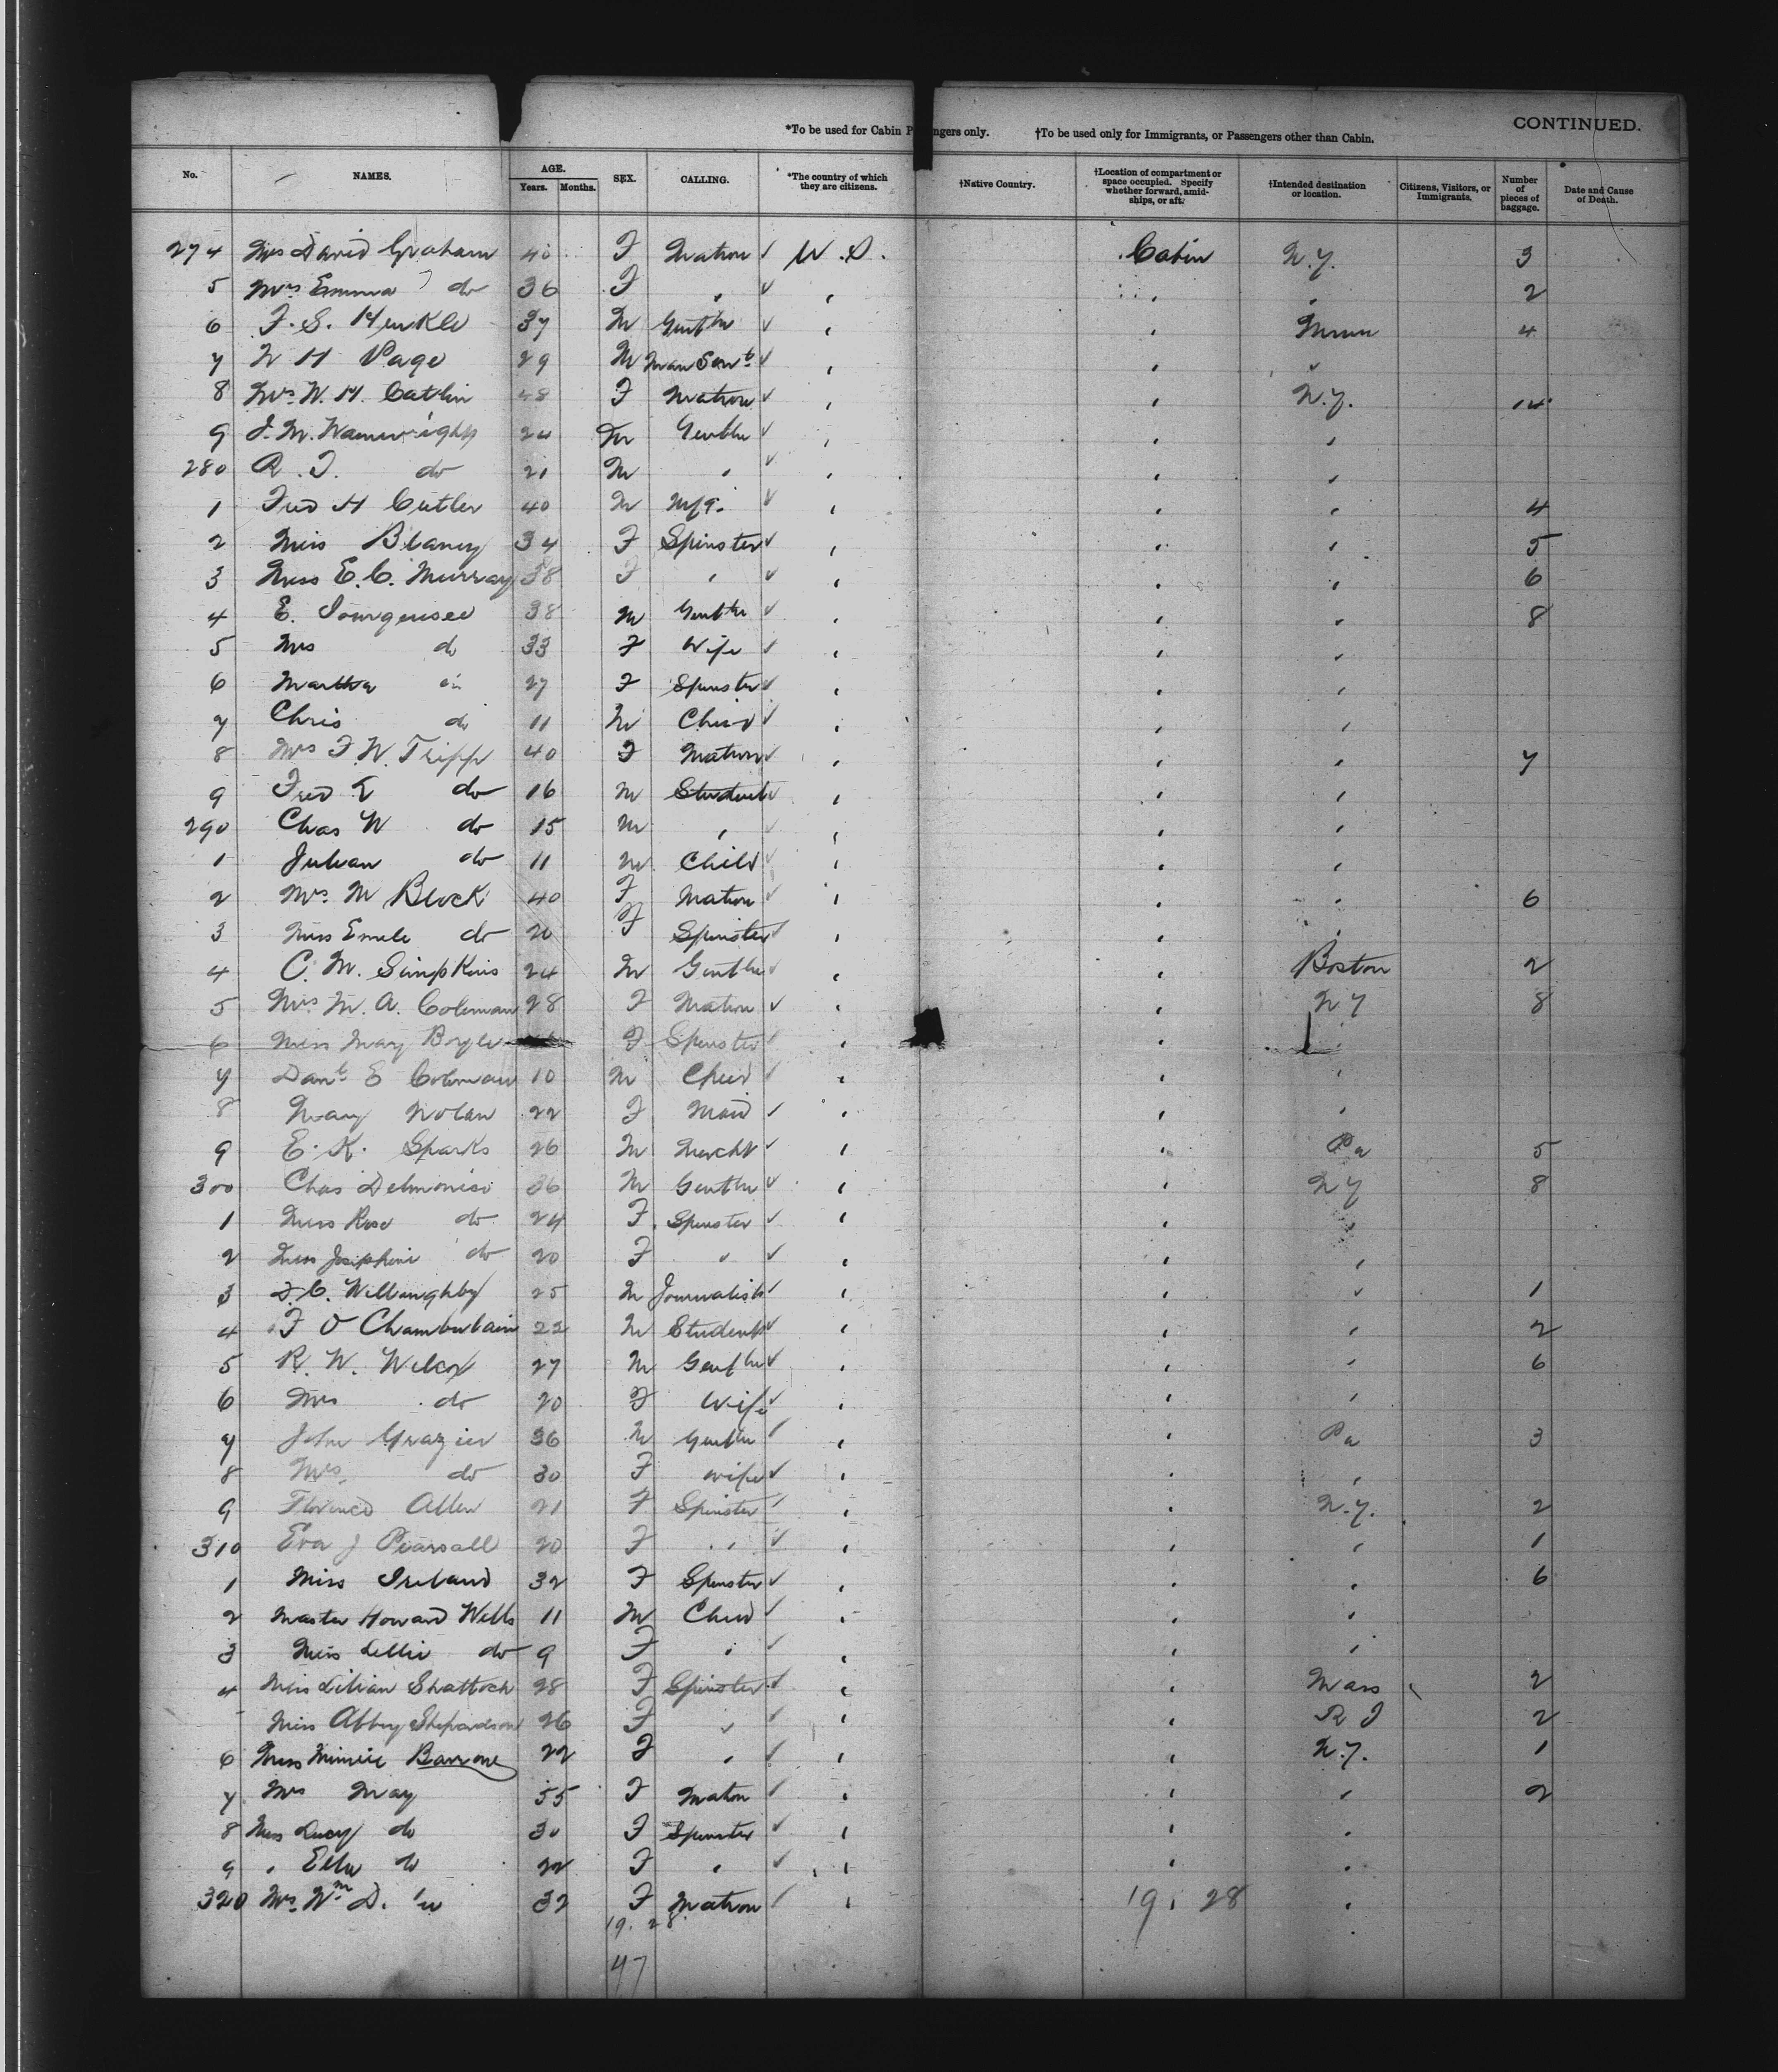 CONTINUED.
*To be used for Cabin P ngers only. †To be used only for Immigrants, or Passengers other than Cabin.
No. NAMES. AGE. Years. Months. SEX. CALLING. *The country of which they are citizens. †Native Country. †Location of compartment or space occupied. Specify whether forward, amidships, or aft. †Intended destination or location. Citizens, Visitors, or Immigrants. Number of pieces of baggage. Date and Cause of Death.
274 Mrs David Graham 40 F Matron ✓ U.S. Cabin N.Y. 3
5 Mrs Emma do 36 F " ✓ " " " 2
6 F. S. Henkle 37 M Gentln ✓ " " Minn 4
7 N H Page 29 M Man Servt ✓ " " "
8 Mrs W. H. Catlin 48 F Matron ✓ " " N.Y. 14
9 J. M. Wainwright 24 M Gentln ✓ " " "
280 R. T. do 21 M " ✓ " " "
1 Fred H Cutler 40 M Mfg. ✓ " " " 4
2 Miss Blaney 34 F Spinster ✓ " " " 5
3 Miss E. C. Murray 38 F " ✓ " " " 6
4 E. 38 M Gentln ✓ " " " 8
5 Mrs do 33 F Wife ✓ " " "
6 Martha do 27 F Spinster ✓ " " "
7 Chris do 11 M Child ✓ " " "
8 Mrs F. W. Tripp 40 F Matron ✓ " " " 7
9 Fred E do 16 M Student ✓ " " "
290 Chas W do 15 M " ✓ " " "
1 Julian do 11 M Child ✓ " " "
2 Mrs M Block 40 F Matron ✓ " " " 6
3 Miss Emile do 20 F Spinster ✓ " " "
4 C. M. Simpkins 24 M Gentln ✓ " " Boston 2
5 Mrs M. A. Coleman 28 F Matron ✓ " " N Y 8
6 Miss May Boyle F Spinster ✓ " " "
7 Danl E Coleman 10 M Child ✓ " " "
8 Mary Nolan 22 F Maid ✓ " " "
9 E. K. Sparks 26 M Mercht ✓ " " Pa 5
300 Chas Delmonico 36 M Gentln ✓ " " N Y 8
1 Miss Rosa do 24 F Spinster ✓ " " "
2 Miss Josephine do 20 F " ✓ " " "
3 D. C. Willoughby 25 M Journalist ✓ " " " 1
4 F O Chamberlain 22 M Student ✓ " " " 2
5 R. W. Wilcox 27 M Gentln ✓ " " " 6
6 Mrs do 20 F Wife ✓ " " "
7 John Grazier 36 M Gentln ✓ " " Pa 3
8 Mrs do 30 F Wife ✓ " " "
9 Florence Allen 21 F Spinster ✓ " " N.Y. 2
310 Eva J Pearsall 20 F " ✓ " " " 1
1 Miss Ireland 32 F Spinster ✓ " " " 6
2 Master Howard Wells 11 M Child ✓ " " "
3 Miss Lellie do 9 F " ✓ " " "
4 Miss Lilian Shattock 28 F Spinster ✓ " " Mass 2
Miss Abbey Shepardson 26 F " ✓ " " R I 2
6 Miss Minnie Barrone 22 F " ✓ " " N.Y. 1
7 Mrs May 55 F Matron ✓ " " " 2
8 Miss Lucy do 30 F Spinster ✓ " " "
9 " Ella do 22 F " ✓ " " "
320 Mrs Wm D. do 32 F Matron ✓ " 19. 28 "
19. 28
47